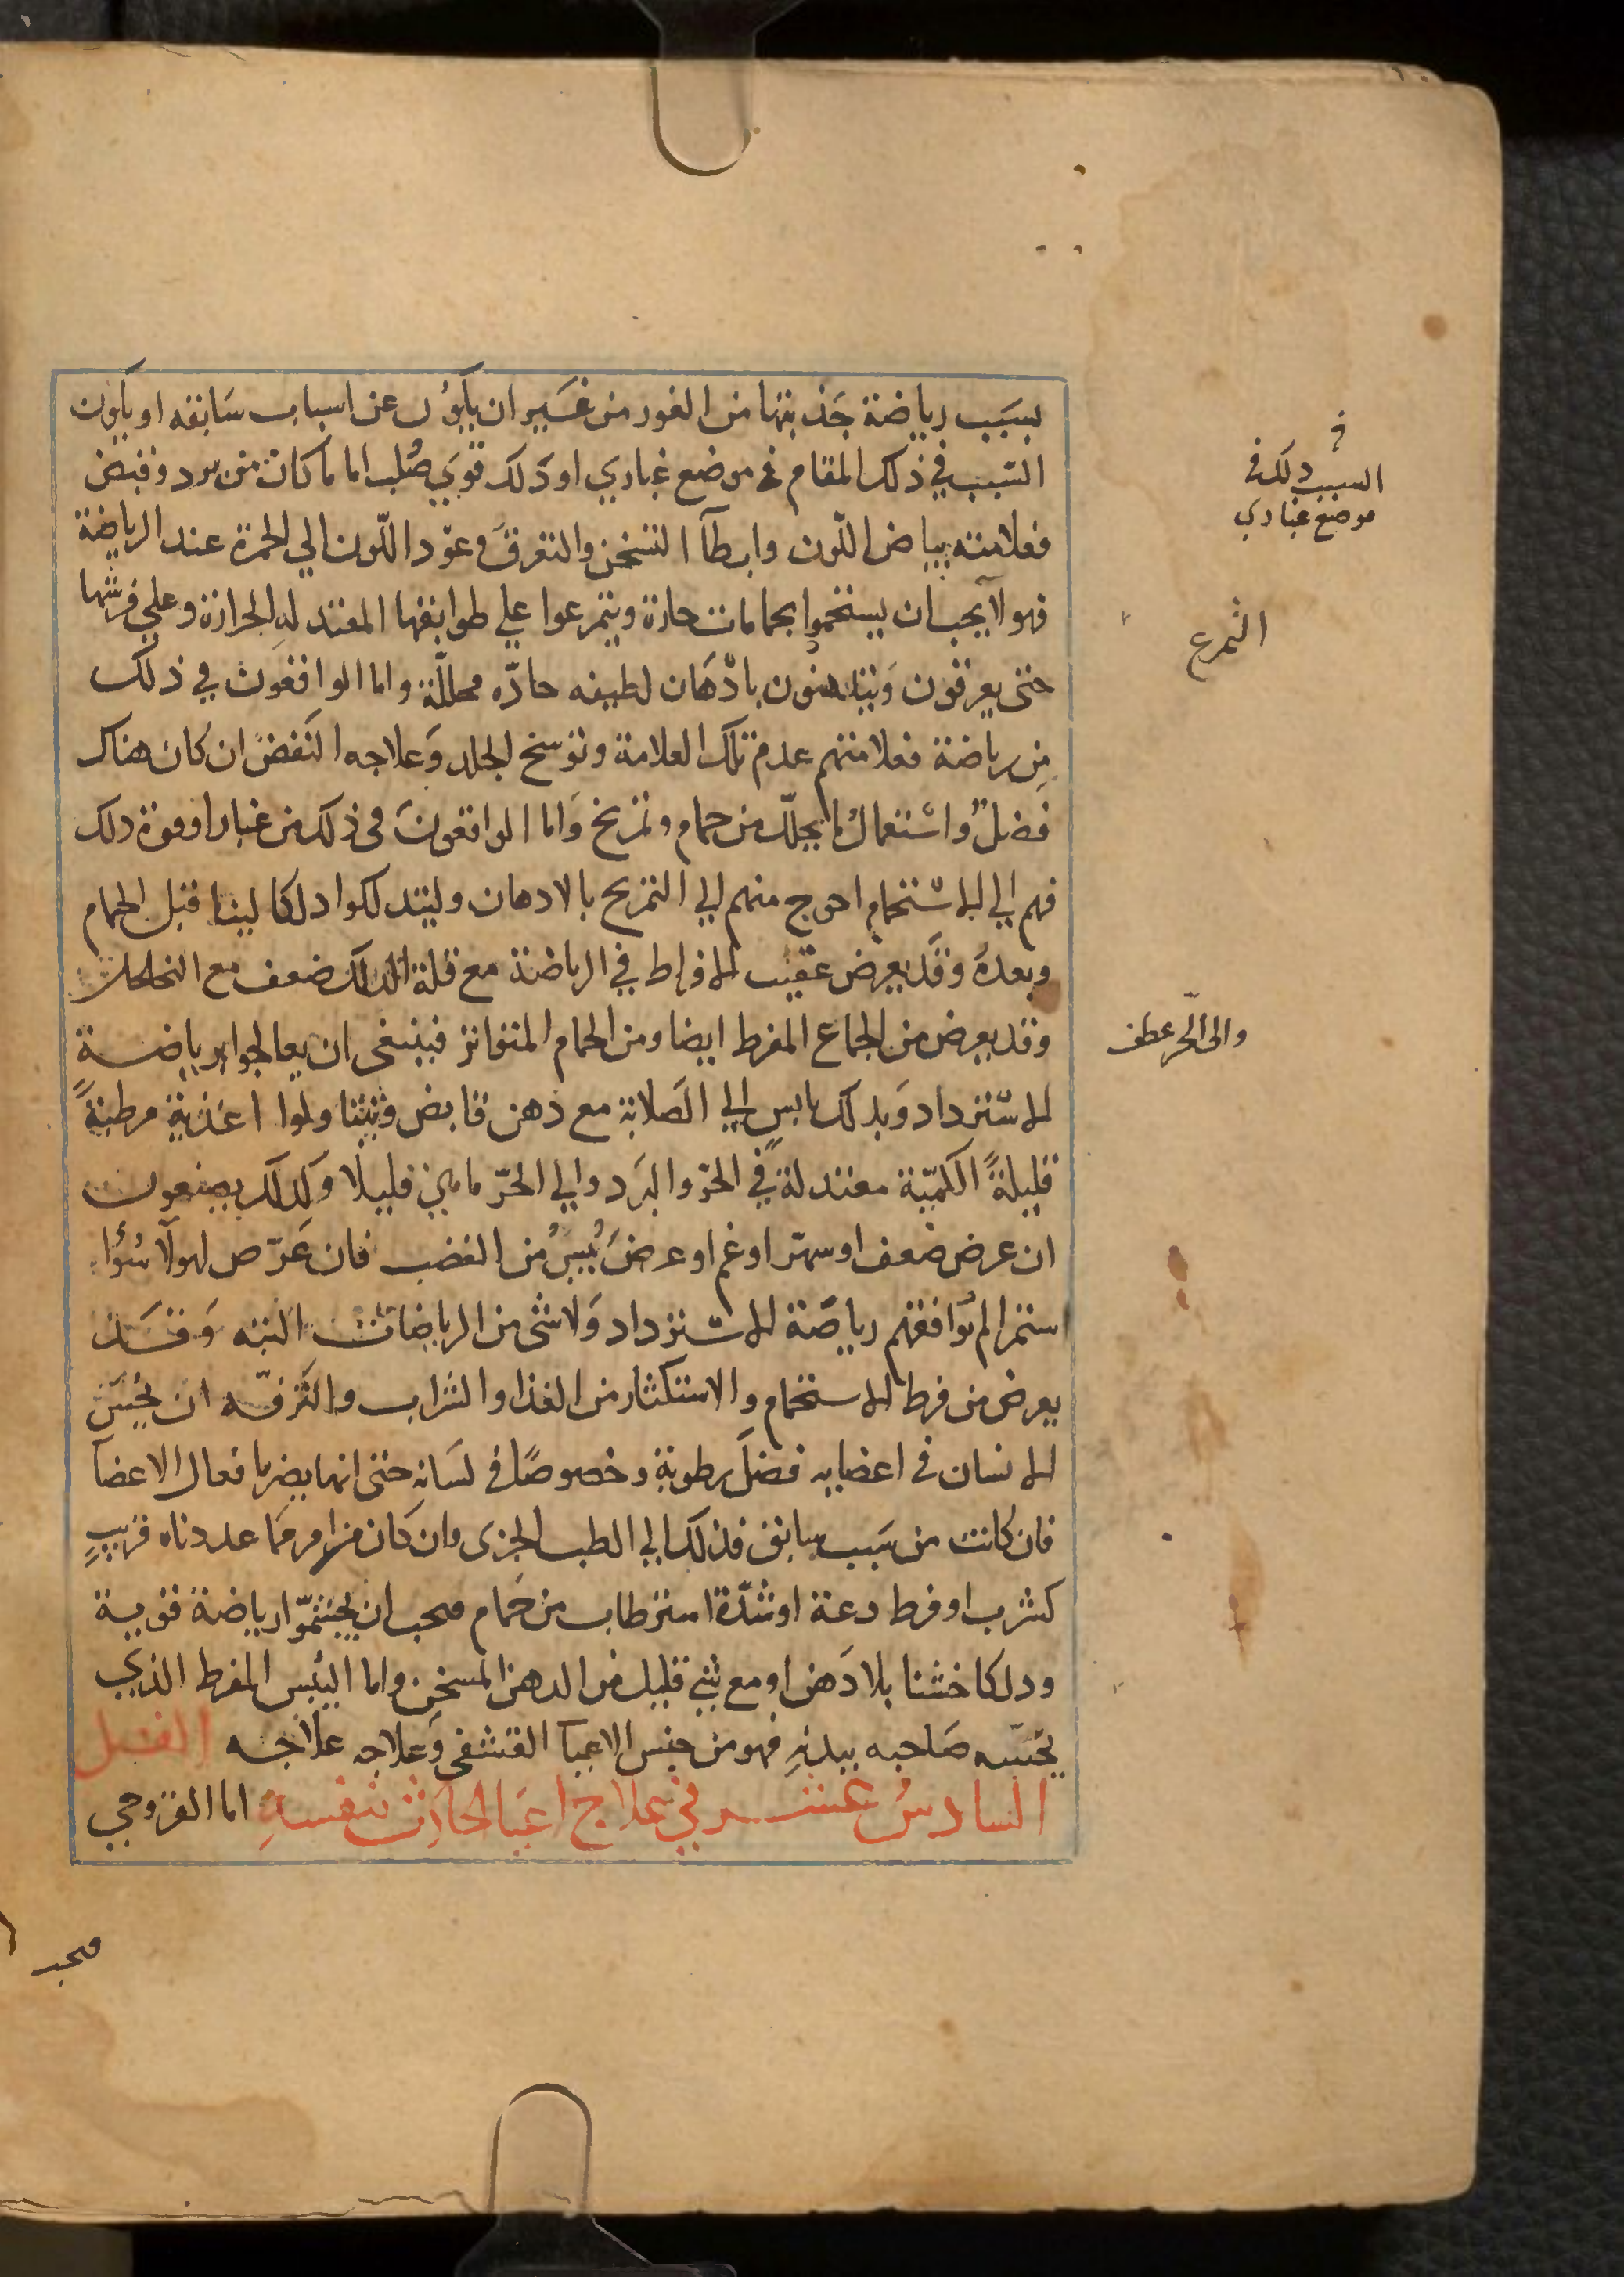 بسبب رياضة جذبتها من الغور من غير ان يكون عن اسباب سابقه او يكون
السبب في ذلك المقام في موضع غباري او دلك قوي صلب اما ما كان من برد وقبض
فعلامته بياض اللون وابطآ التسخن والتعرق وعود اللون الي الحمرة عند الرياضة
فهولآ يجب ان يستحموا بحمامات حارة ويتمرعوا علي طوابقها المعتدله الحرارة وعلي فرشها
حتى يعرقون ويتدهنون بادهان لطيفه حادّه محللّة واما الواقعون في ذلك
من رياضة فعلامتهم عدم تلك العلامة وتوسخ الجلد وعلاجه النفض ان كان هناك
فضل واستعمال ما يحلّل من حمام وتمريخ واما الواقعون في ذلك من غبار او قوة دلك
فهم الي الاستحمام احوج منهم الي التمريخ بالادهان وليتدلكوا دلكا لينا قبل الحمام
وبعده وقد يعرض عقيب الافراط في الرياضة مع قلة الدلك ضعف مع التخلخل
وقد يعرض من الجماع المفرط ايضا ومن الحمام المتواتر فينبغى ان يعالجوا برياضة
الاسترداد وبدلك يابس الي الصلابة مع دهن قابض ويتناولوا اغذية مرطبةً
قليلةً الكمّية معتدلة في الحرّ والبرد والي الحرّ ما هي قليلا وكذلك يصنعون
ان عرض ضعف او سهر او غم او عرض يُبسٌ من الغضب فان عرض لهولآ سُوا
استمرا لم توافقهم رياضة الاسترداد ولا شى من الرياضات البته وقد
يعرض من فرط الاستحمام والاستكثار من الغذا والشراب والترفّه ان يحسّ
الانسان في اعضايه فضل رطوبة وخصوصًا في لسانه حتى انها يضر بافعال الاعضآ
فان كانت من سبب سابق فذلك الي الطب الجزى وان كان من امر مما عددناه قريبٍ
كشرب او فرط دعة او شدّة استرطاب من حمام فيجب ان يجشمّوا رياضة قوية
ودلكا خشنا بلا دهن او مع شي قليل من الدهن المسخن واما اليُبس المفرط الذي
يحسّه صاحبه ببدنه فهو من جنس الاعيا القشفى وعلاجه علاجه الفصل
السادس عشر في علاج اعيا الحادث بنفسه اما القروحي
السبب دلك في
موضع غباري
التمرع
والى الحّر عطف
فيجب